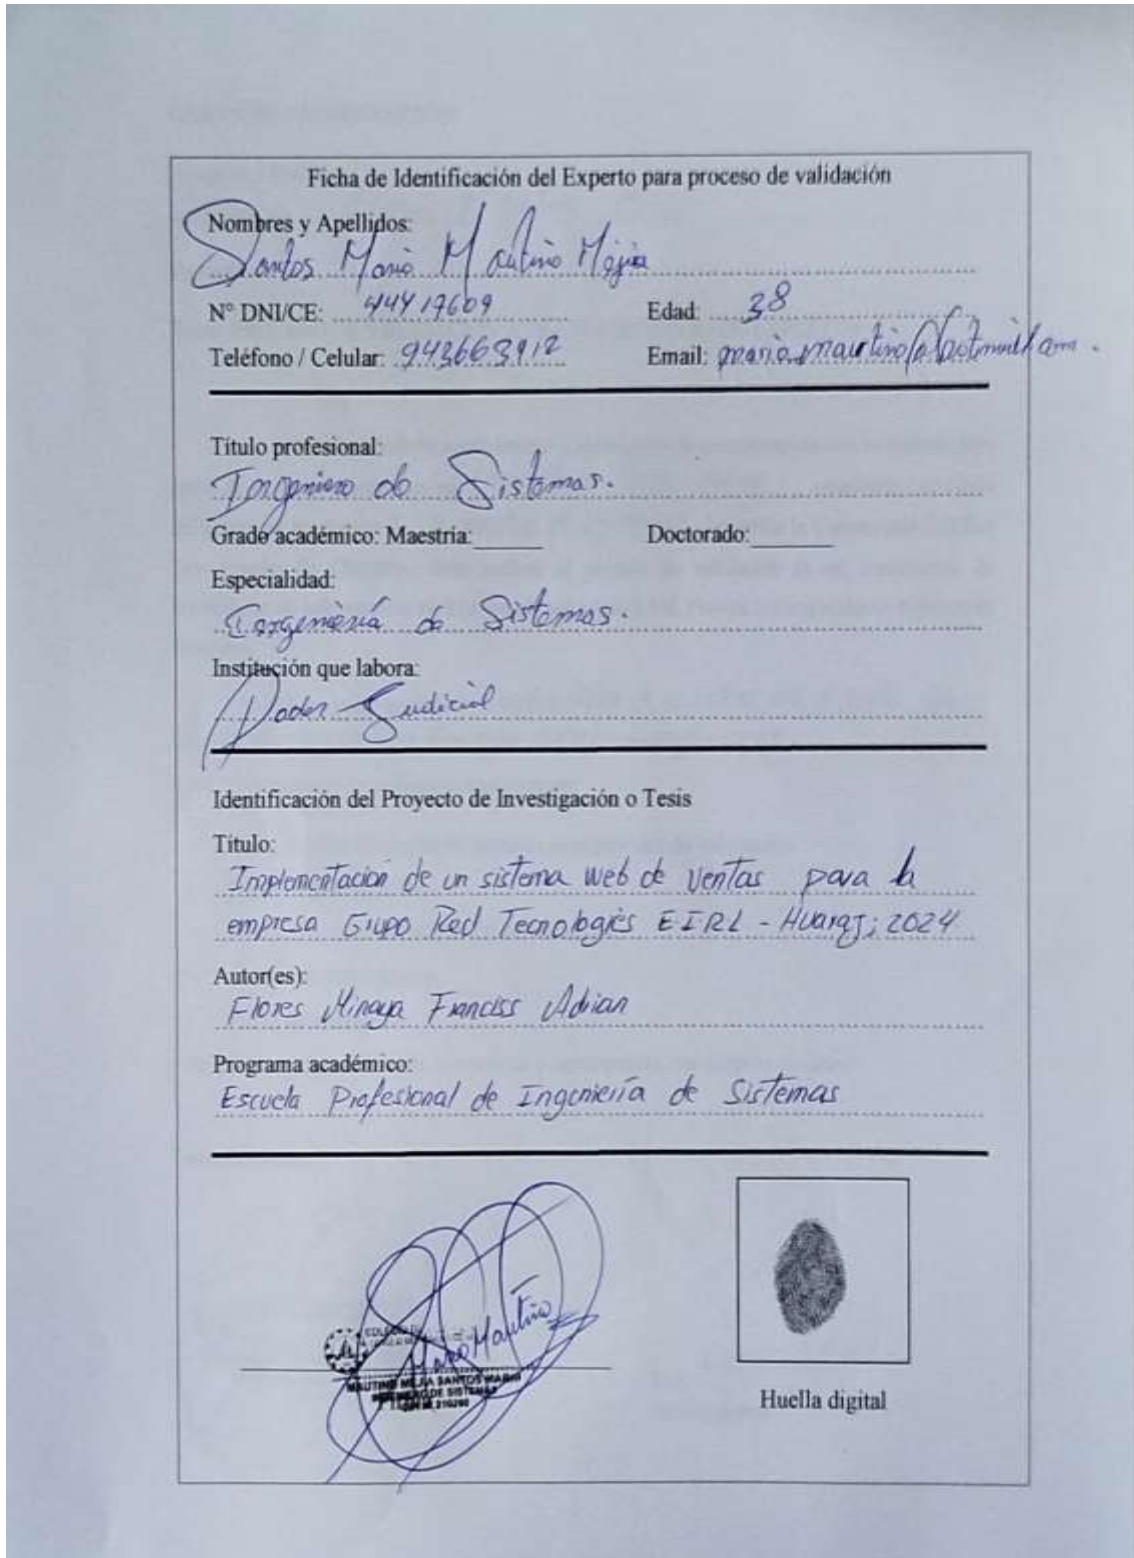 Ficha de Identificación del Experto para proceso de validación
Nombres y Apellidos:
Santos Mario Mautino Mejia
N° DNI/CE: 44417609 Edad: 38
Teléfono / Celular: 943663912 Email: mario.mautino@hotmail.com.
Título profesional:
Ingeniero de Sistemas.
Grado académico: Maestría:______ Doctorado:_______
Especialidad:
Ingeniería de Sistemas.
Institución que labora:
Poder Judicial
Identificación del Proyecto de Investigación o Tesis
Título:
Implementación de un sistema web de ventas para la
empresa Grupo Red Tecnologies E.I.R.L - Huaraz; 2024
Autor(es):
Flores Minaya Franciss Adrian
Programa académico:
Escuela Profesional de Ingeniería de Sistemas
Mario Mautino
MAUTINO MEJIA SANTOS MARIO
INGENIERO DE SISTEMAS
Huella digital